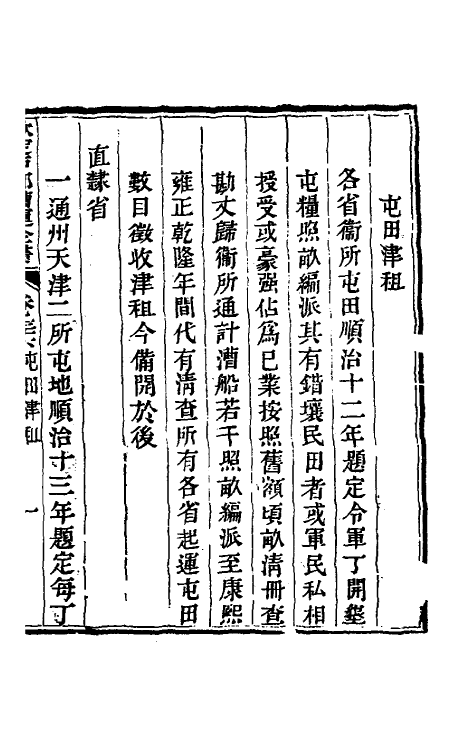 屯田津租
各省衞所屯田順治十二年題定令軍丁開墾
屯糧照畝編派其有錯壤民田者或軍民私相
授受或豪强佔爲己業按照舊額頃畝清冊查
勘丈歸衞所通計漕船若干照畝編派至康熙
雍正乾隆年間代有清查所有各省起運屯田
數目徵收津租今備開於後
直隸省
一通州天津二所屯地順治十三年題定每丁
屯田津租 一